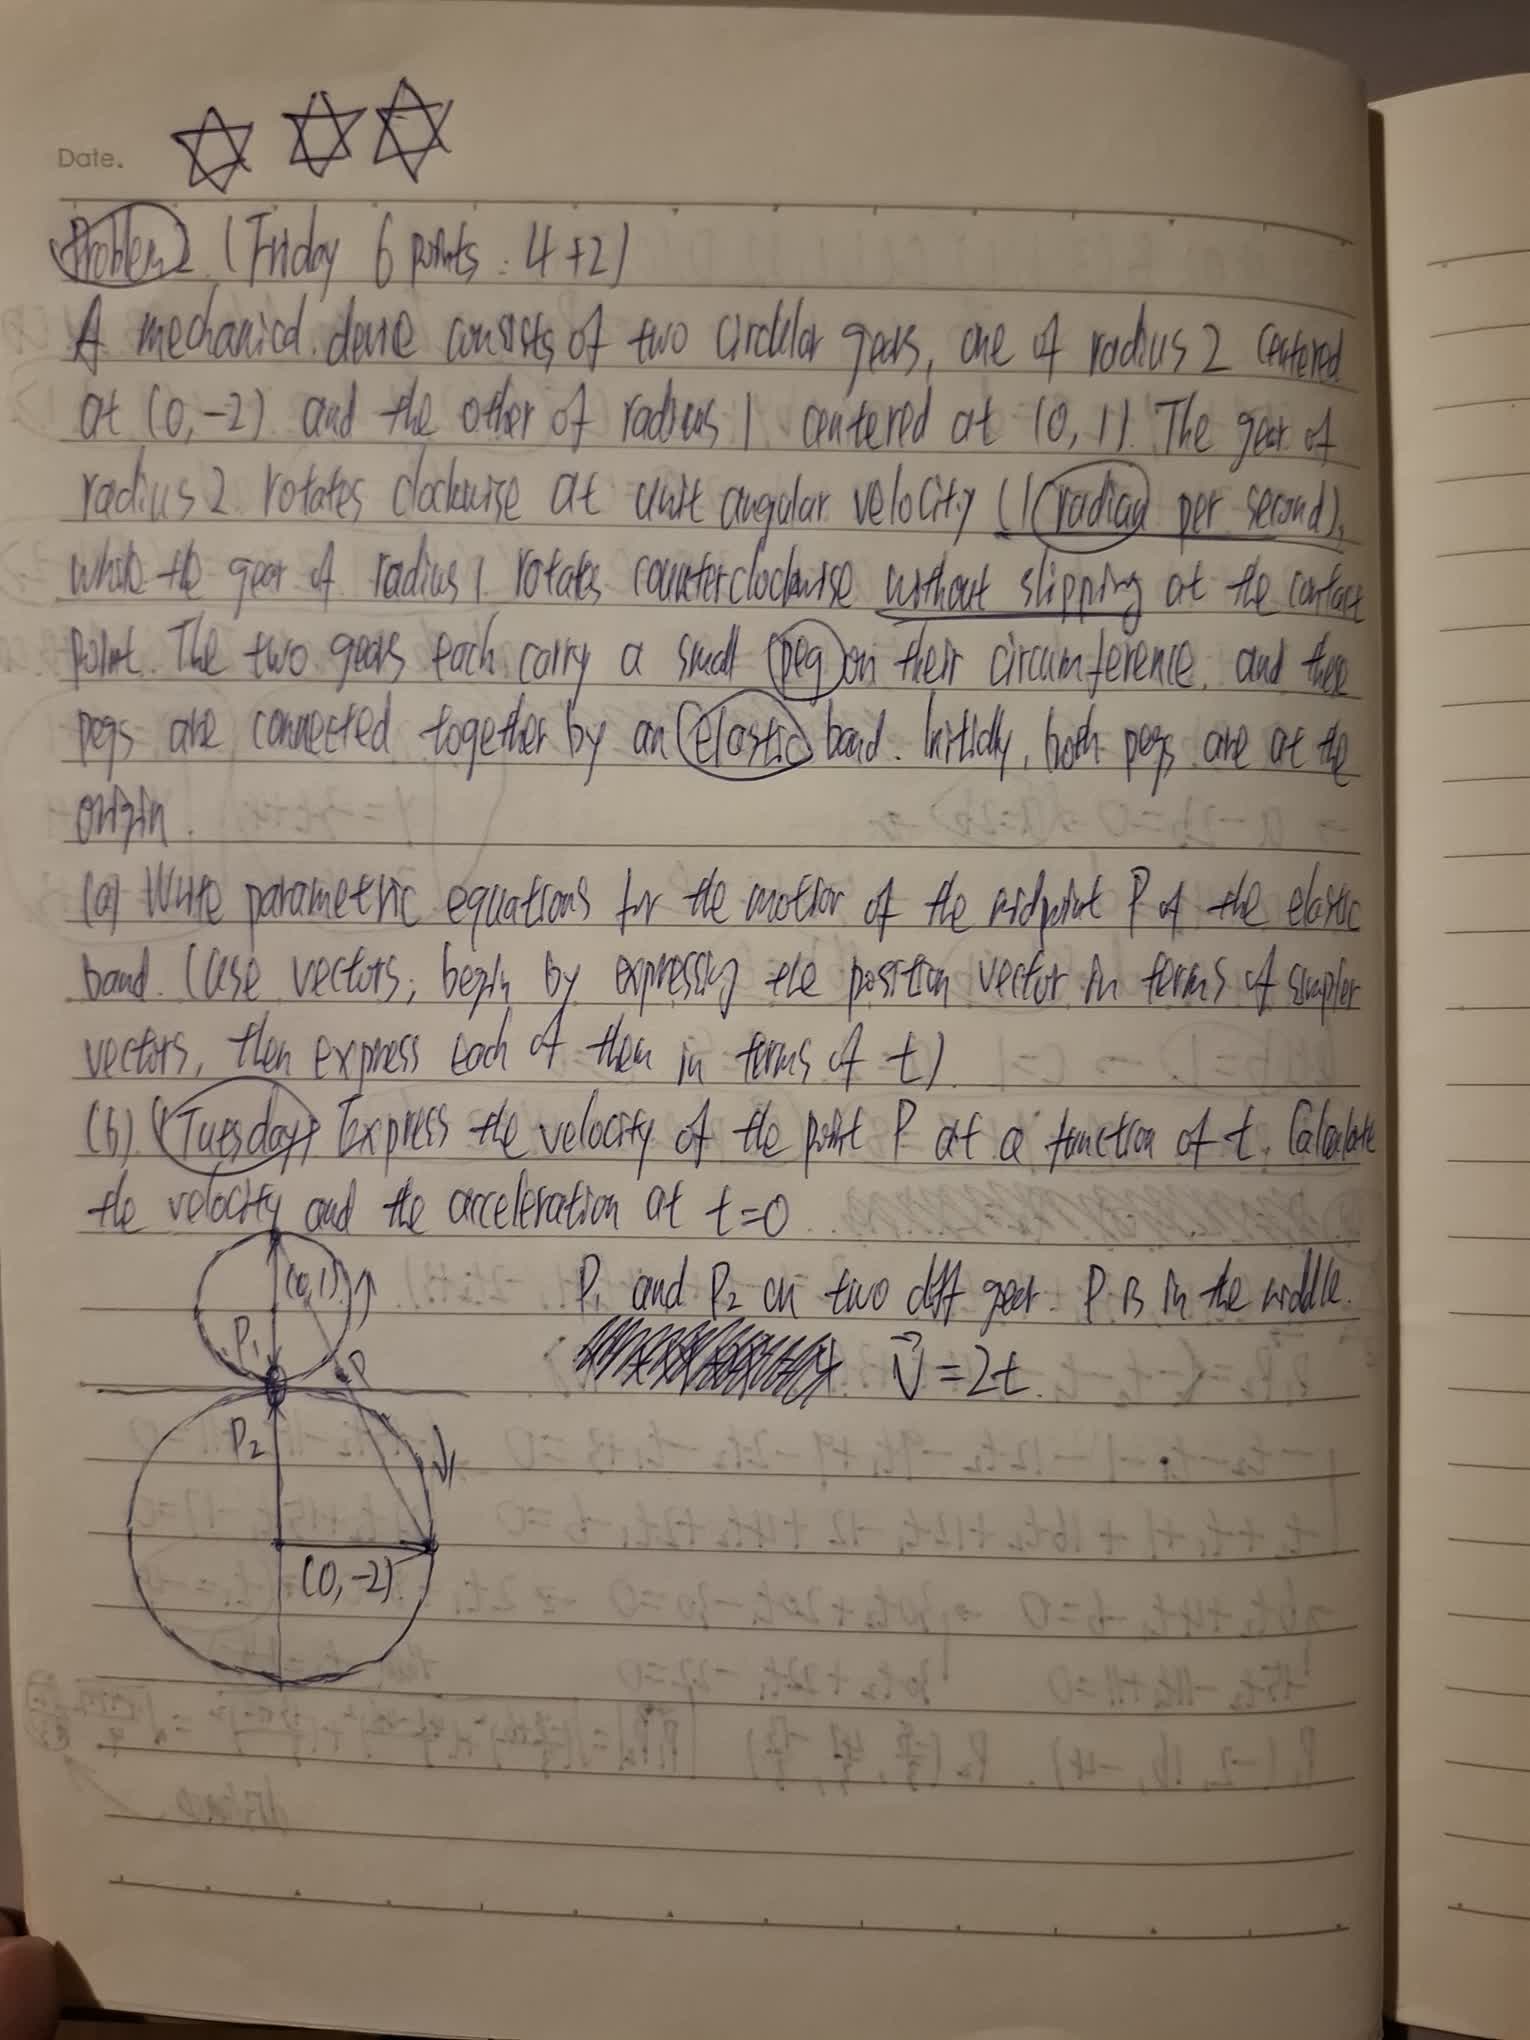 Date.
Problem 2 (Friday 6 points: 4+2)
A mechanical device consists of two circular gears, one of radius 2 centered
at (0,-2) and the other of radius 1 centered at (0,1). The gear of
radius 2 rotates clockwise at unit angular velocity (1 radian per second),
while the gear of radius 1 rotates counterclockwise without slipping at the contact
point. The two gears each carry a small peg on their circumference, and these
pegs are connected together by an elastic band. Initially, both pegs are at the
origin.
(a) Write parametric equations for the motion of the midpoint P of the elastic
band. (Use vectors; begin by expressing the position vector in terms of simpler
vectors, then express each of them in terms of t)
(b) (Tuesday) Express the velocity of the point P at a function of t. Calculate
the velocity and the acceleration at t=0
(0,1)
P₁ and P₂ on two diff gear. P is in the middle.
P₁
P
V⃗ = 2t.
P₂
(0,-2)